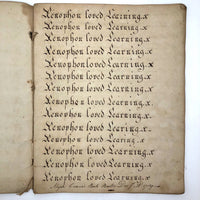 Xenophon loved Learning.x
Xenophon loved Learning.x
Xenophon loved Learning.x
Xenophon loved Learning.x
Xenophon loved Learning.x
Xenophon loved Learning.x
Xenophon loved Learning.x
Xenophon loved Learning.x
Xenophon loved Learning.x
Xenophon loved Learning.x
Xenophon loved Learning.x
Xenophon loved Learning.x
Xenophon loved Learning.x
Book